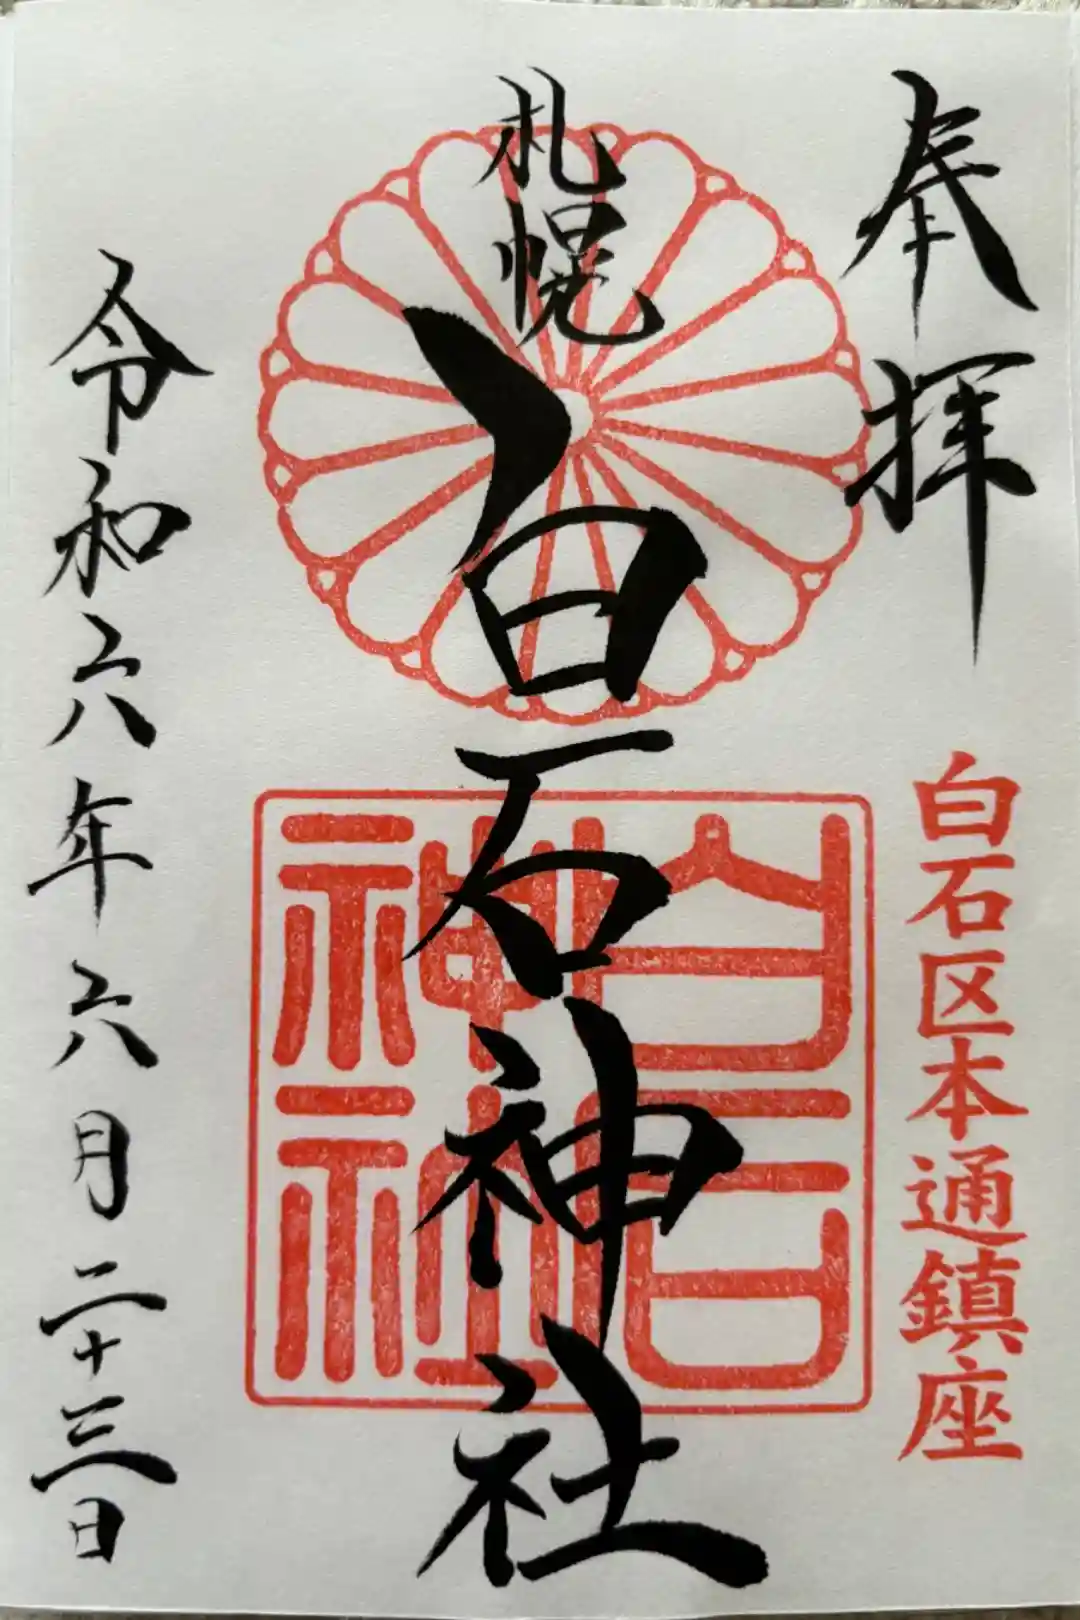 奉拝
白石区本通鎮座
札幌
白石神社
白石神社
令和六年六月二十三日